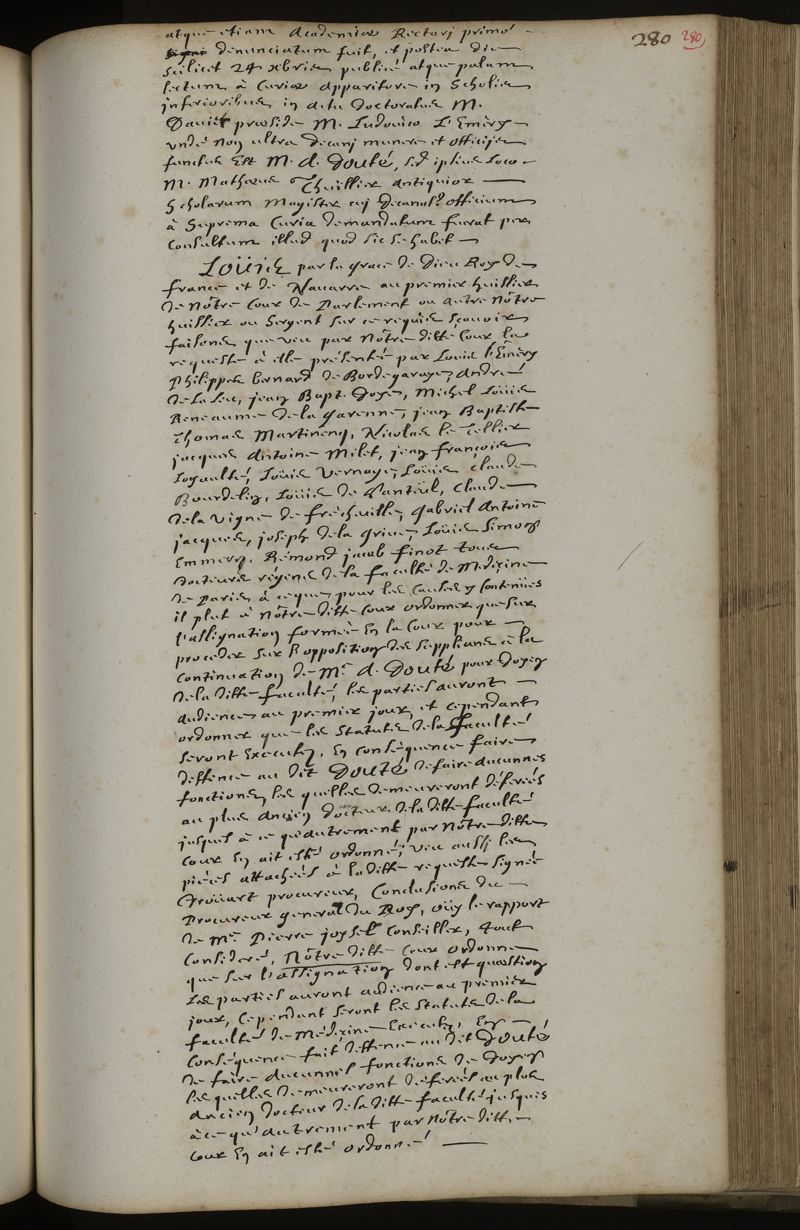 280 280
atque etiam Academiæ Rectori primò
denunciatum fuit, et postea die
scilicet 24 xbris publicè atque palam
lectum à Curiæ apparitore in Scholis
inferioribus in actu doctoratus M.
Daniel præside M. Ludovico L'Emery
undè non ultra decani munere et officijs
functus est M. A. Douté, sed ipsius loco
M. Mathæus Thuillier antiquior
Scholarum Magister cui Decanat9 officium
à Suprema Curia demandatum fuerat per
Consultum illud quod sic se habet
Loüis par la grace de Dieu Roy de
france et de Navarre au premier huissier
de Nôtre Cour de Parlement ou autre Nôtre
huissier ou Sergent sur ce requis sçavoir
faisons, que veu par Nôtre ditte Cour la
requeste à elle présentée par Loüis l'Emery
Philippes bernard de Bordegaraye, André
de la Leu, jean Bapt. Doye, Michel Loüis
Reneaume de la garenne, jean Baptiste
Thomas Martinenq, Nicolas le Tellier
jacques Antoine Milet, jean françois
Leaulté, Loüis Vernage, Loüis Claude
Bourdelin, Loüis de Santeüil, Claude
de la Vigne de frécheville, gabriel Antoine
jacques, joseph de la grive, Loüis Simon
Emmerez, Rémond jacob finot tous
docteurs régens de la faculté de Medecine
de Paris à ce que pour les causes y contenües
il plut à Nôtre ditte Cour ordonner que sur
l'assignation formée en la Cour pour
proceder sur l'opposition des supplians à la
continuation de Me. A. Douté pour Doyen
de la ditte faculté, les parties auront
audience au premier jour, et cependant
ordonner que les statuts de la faculté
seront executez, en conséquence faire
deffence au dit Douté de faire aucunnes
fonctions, les quelles demeureront déferées
au plus ancien docteur de la ditte faculté
jusques à ce qu'autrement par Nôtre ditte
Cour en ait esté ordonné; veu aussi les
pièces attachées à la ditte requeste signée
Droüart procureur, Conclusions du
Procureur general du Roy, oüy le rapport
de Me. Pierre joysel Conseiller, tout
Consideré, Nôtre ditte Cour ordonne
que sur l'assignation dont est question
Les parties auront audience au premier
jour, Cependant seront les statuts de la
faculté de Médecine Executez, En
Conséquence fait deffence au dit Douté
de faire aucunnes fonctions de Doyen
les quelles demeureront déferées au plus
Ancien docteur de la ditte faculté jusques
à ce qu'autrement par Nôtre ditte
Cour En ait esté ordonné